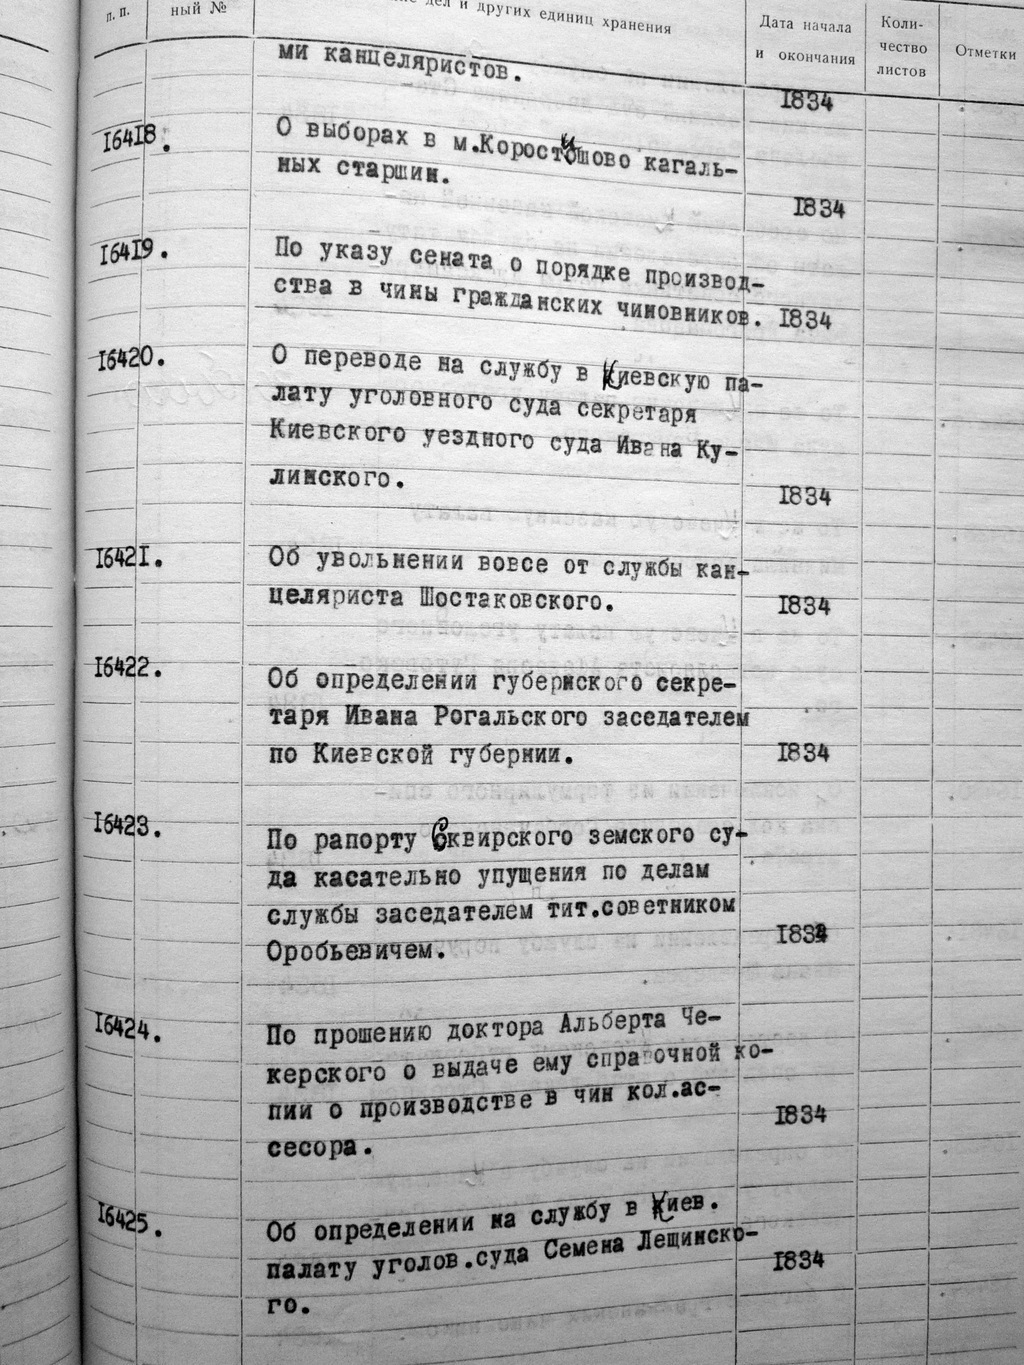 п.п.
ный №
дел и других единиц хранения
Дата начала
и окончания
Коли-
чество
листов
Отметки
ми канцеляристов.
1834
16418.
О выборах в м.Коростышово кагаль-
ных старшин.
1834
16419.
По указу сената о порядке производ-
ства в чины гражданских чиновников.
1834
16420.
О переводе на службу в Киевскую па-
лату уголовного суда секретаря
Киевского уездного суда Ивана Ку-
линского.
1834
16421.
Об увольнении вовсе от службы кан-
целяриста Шостаковского.
1834
16422.
Об определении губернского секре-
таря Ивана Рогальского заседателем
по Киевской губернии.
1834
16423.
По рапорту Сквирского земского су-
да касательно упущения по делам
службы заседателем тит.советником
Оробьевичем.
1834
16424.
По прошению доктора Альберта Че-
керского о выдаче ему справочной ко-
пии о производстве в чин кол.ас-
сесора.
1834
16425.
Об определении на службу в Киев.
палату уголов.суда Семена Лещинско-
го.
1834